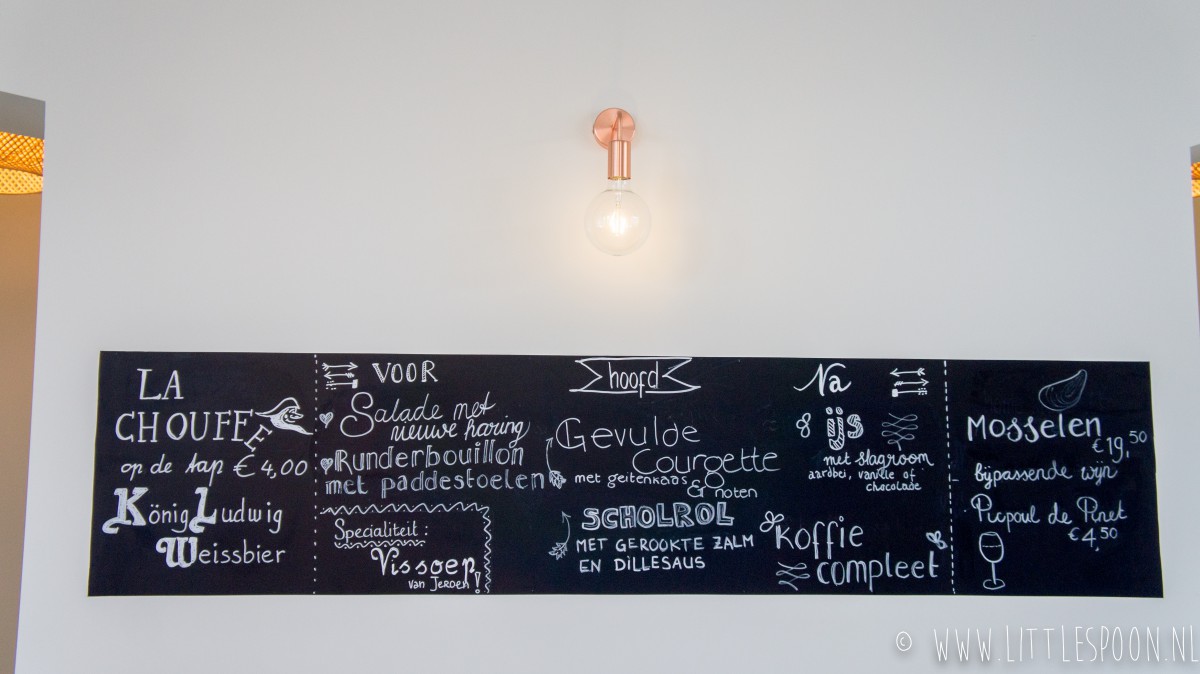 LA
CHOUFFE
op de tap € 4,00
König Ludwig
Weissbier
VOOR
Salade met
nieuwe haring
Runderbouillon
met paddestoelen
Specialiteit:
Vissoep!
van Jeroen
hoofd
Gevulde
Courgette
met geitenkaas
& noten
SCHOLROL
MET GEROOKTE ZALM
EN DILLESAUS
Na
ijs
met slagroom
aardbei, vanille of
chocolade
koffie
compleet
Mosselen
€19,50
bijpassende wijn
Picpoul de Pinet
€4,50
© WWW.LITTLESPOON.NL